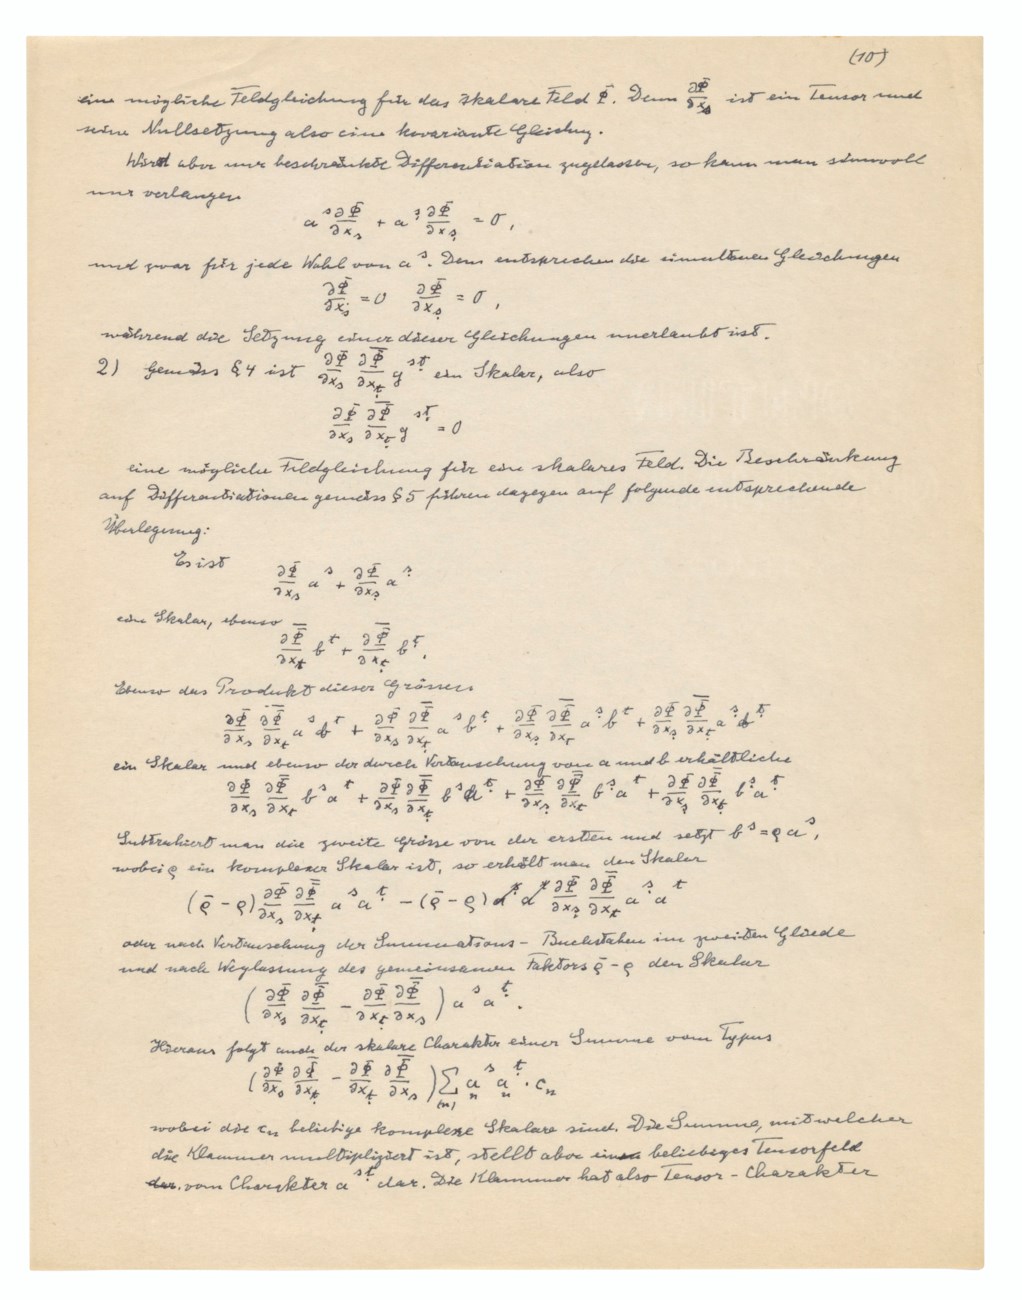 (10)
eine mögliche Feldgleichung für das skalare Feld Φ̄. Denn ∂Φ̄/∂x_ṣ ist ein Tensor und
seine Nullsetzung also eine kovariante Gleichung.
Wird aber nur beschränkte Differentiation zugelassen, so kann man sinnvoll
nur verlangen
a^s ∂Φ̄/∂x_s + a^ṣ ∂Φ̄/∂x_ṣ = 0,
und zwar für jede Wahl von a^s. Dem entsprechen die simultanen Gleichungen
∂Φ̄/∂x_s = 0 ∂Φ̄/∂x_ṣ = 0,
während die Setzung einer dieser Gleichungen unerlaubt ist.
2) Gemäss §4 ist ∂Φ̄/∂x_s ∂Φ̿/∂x_ṭ g^{sṭ} ein Skalar, also
∂Φ̄/∂x_s ∂Φ̿/∂x_ṭ g^{sṭ} = 0
eine mögliche Feldgleichung für ein skalares Feld. Die Beschränkung
auf Differentiationen gemäss §5 führen dagegen auf folgende entsprechende
Überlegung:
Es ist ∂Φ̄/∂x_s a^s + ∂Φ̄/∂x_ṣ a^ṣ
ein Skalar, ebenso
∂Φ̿/∂x_t b^t + ∂Φ̿/∂x_ṭ b^ṭ.
Ebenso das Produkt dieser Grössen
∂Φ̄/∂x_s ∂Φ̿/∂x_t a^s b^t + ∂Φ̄/∂x_s ∂Φ̿/∂x_ṭ a^s b^ṭ + ∂Φ̄/∂x_ṣ ∂Φ̿/∂x_t a^ṣ b^t + ∂Φ̄/∂x_ṣ ∂Φ̿/∂x_ṭ a^ṣ b^ṭ
ein Skalar und ebenso der durch Vertauschung von a und b erhältliche
∂Φ̄/∂x_s ∂Φ̿/∂x_t b^s a^t + ∂Φ̄/∂x_s ∂Φ̿/∂x_ṭ b^s a^ṭ + ∂Φ̄/∂x_ṣ ∂Φ̿/∂x_t b^ṣ a^t + ∂Φ̄/∂x_ṣ ∂Φ̿/∂x_ṭ b^ṣ a^ṭ
Subtrahiert man die zweite Grösse von der ersten und setzt b^s = ϱ a^s,
wobei ϱ ein komplexer Skalar ist, so erhält man den Skalar
(ϱ̄ - ϱ) ∂Φ̄/∂x_s ∂Φ̿/∂x_ṭ a^s a^ṭ - (ϱ̄ - ϱ) ∂Φ̄/∂x_ṣ ∂Φ̿/∂x_t a^ṣ a^t
oder nach Vertauschung der Summations-Buchstaben im zweiten Gliede
und nach Weglassung des gemeinsamen Faktors ϱ̄ - ϱ den Skalar
(∂Φ̄/∂x_s ∂Φ̿/∂x_ṭ - ∂Φ̄/∂x_ṭ ∂Φ̿/∂x_s) a^s a^ṭ.
Hieraus folgt auch der skalare Charakter einer Summe vom Typus
(∂Φ̄/∂x_s ∂Φ̿/∂x_ṭ - ∂Φ̄/∂x_ṭ ∂Φ̿/∂x_s) Σ_(n) a_n^s a_n^ṭ · c_n
wobei die c_n beliebige komplexe Skalare sind. Die Summe, mit welcher
die Klammer multipliziert ist, stellt aber ein beliebiges Tensorfeld
vom Charakter a^{sṭ} dar. Die Klammer hat also Tensor-Charakter